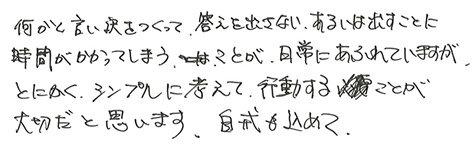 何かと言い訳をつくって、答えを出さない、あるいは出すことに
時間がかかってしまう、ことが、日常にあふれていますが、
とにかく、シンプルに考えて、行動することが
大切だと思います。自戒も込めて、